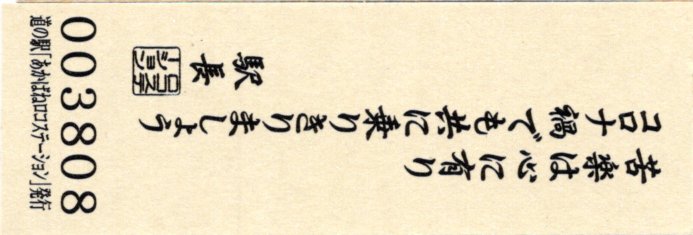 苦楽は心に有り
コロナ鍋でも共に乗りきりましょう
駅長
ロコステ
ーション
003808
道の駅「あかばねロコステーション」発行